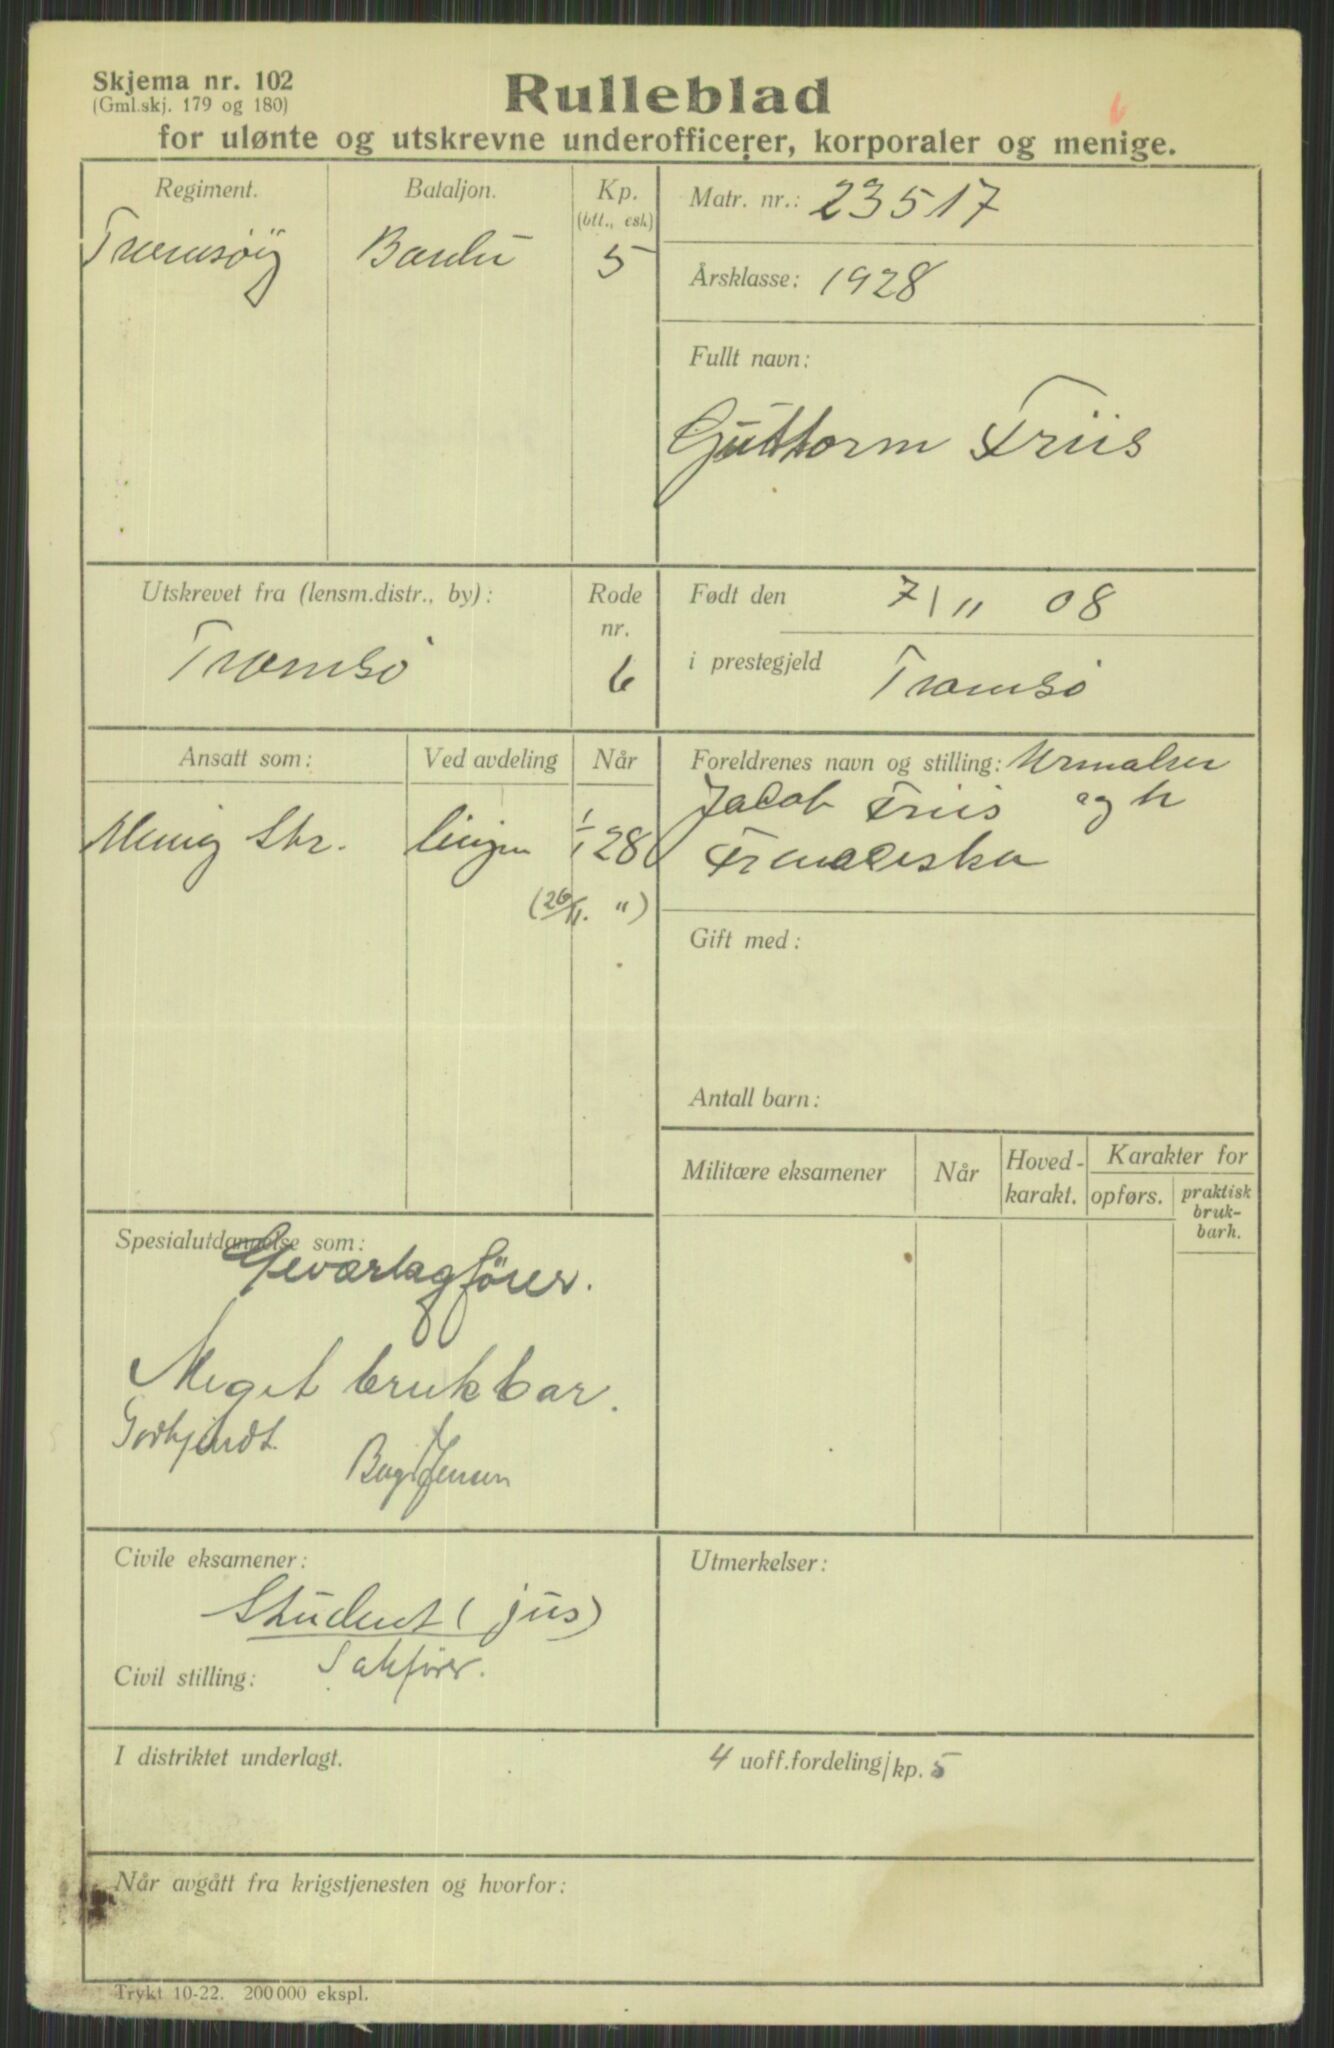 Skjema nr. 102
(Gml.skj. 179 og 180)
6
Rulleblad
for ulønte og utskrevne underofficerer, korporaler og menige.
Regiment. Bataljon. Kp. (btt., esk)
Bardu 5
Matr. nr.: 23517
Årsklasse: 1928
Fullt navn:
Guttorm Friis
Utskrevet fra (lensm.distr., by):
Tromsø
Rode nr.
6
Født den 7/11 08
i prestegjeld Tromsø
Ansatt som: Ved avdeling Når
Menig Str. linjen 1/1 28
(26/11. ")
Foreldrenes navn og stilling: Urmaker
Jacob Friis og h
Franciska
Gift med:
Antall barn:
Militære eksamener Når Hoved-karakt. Karakter for
opførs. praktisk bruk-barh.
Spesialutdannelse som:
Geværlagfører.
Meget brukbar.
Godkjendt.
Civile eksamener:
Student (jus)
Civil stilling: Sakfører.
Utmerkelser:
I distriktet underlagt. 4 uoff.fordeling/kp. 5
Når avgått fra krigstjenesten og hvorfor:
Trykt 10-22. 200 000 ekspl.